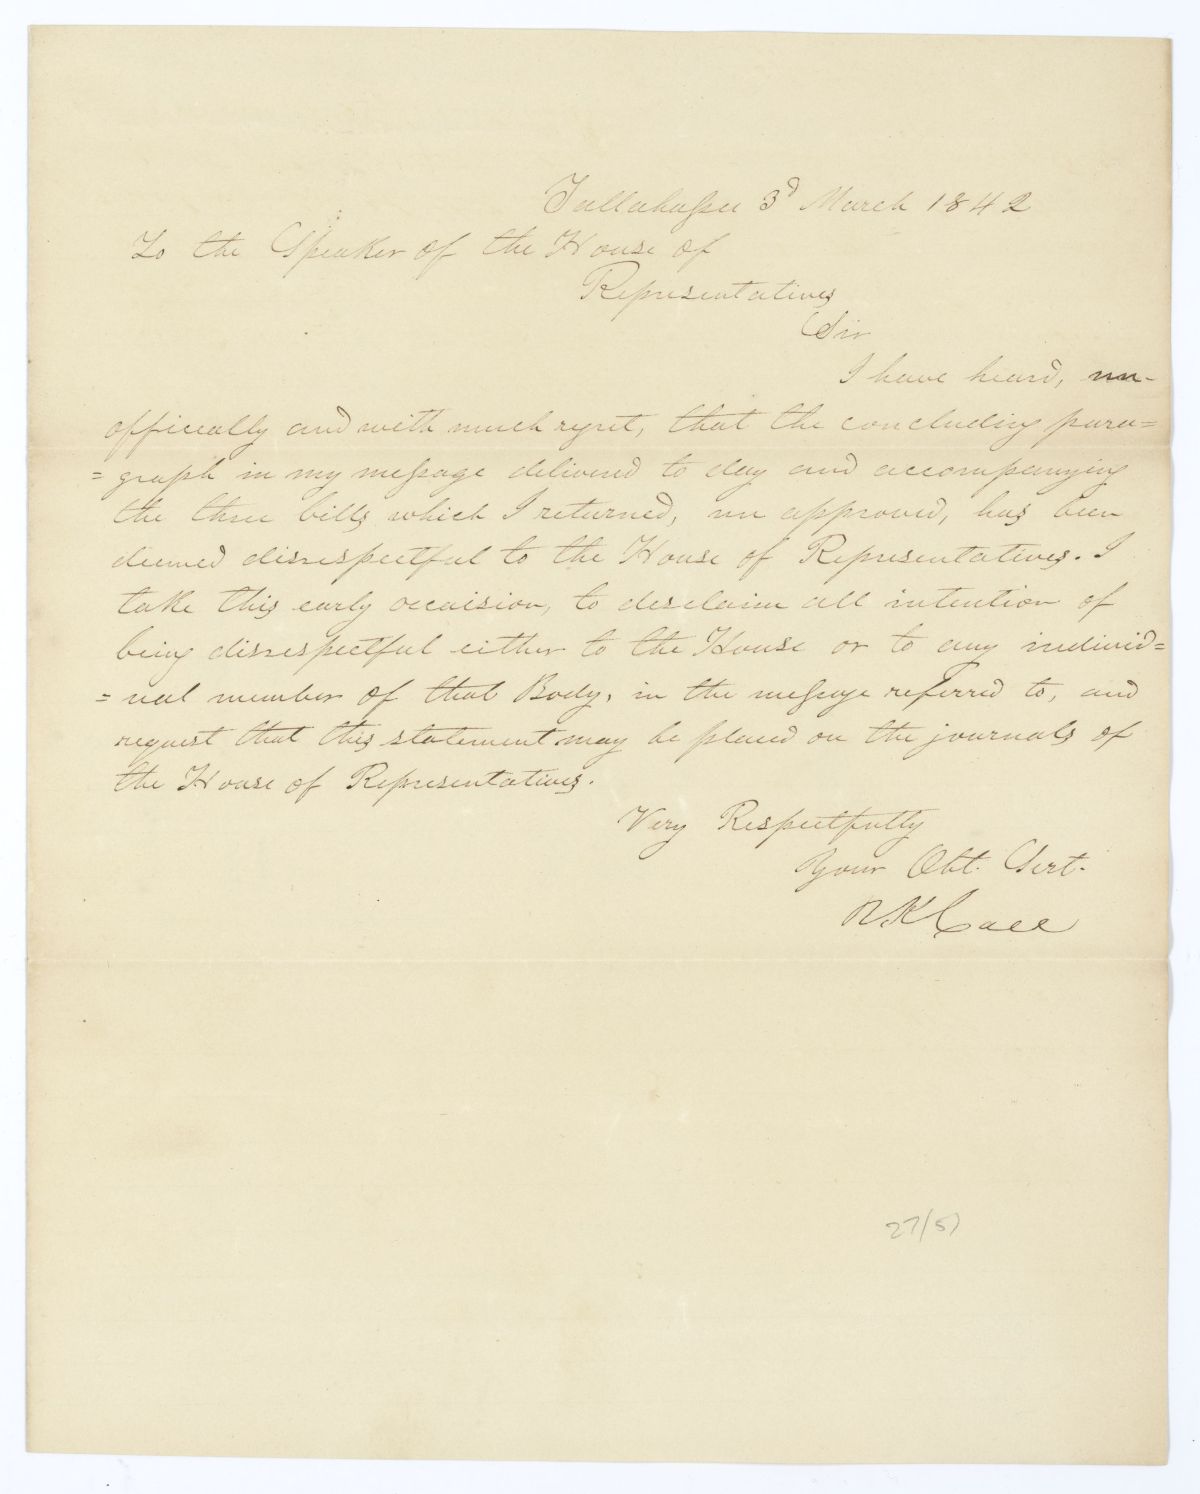 Tallahassee 3d March 1842
To the Speaker of the House of
Representatives
Sir
I have heard, un-
officeally and with much regret, that the concluding para=
=graph in my message delivered to day and accompanying
the three bills which I returned, un approved, has been
deemed disrespectful to the House of Representatives. I
take this early occaision, to desclaim all intention of
being disrespectful either to the House or to any individ=
=ual member of that Body, in the message referred to, and
request that this statement may be placed on the journals of
the House of Representatives.
Very Respectfully
Your Obt. Servt.
R K Call
27/51